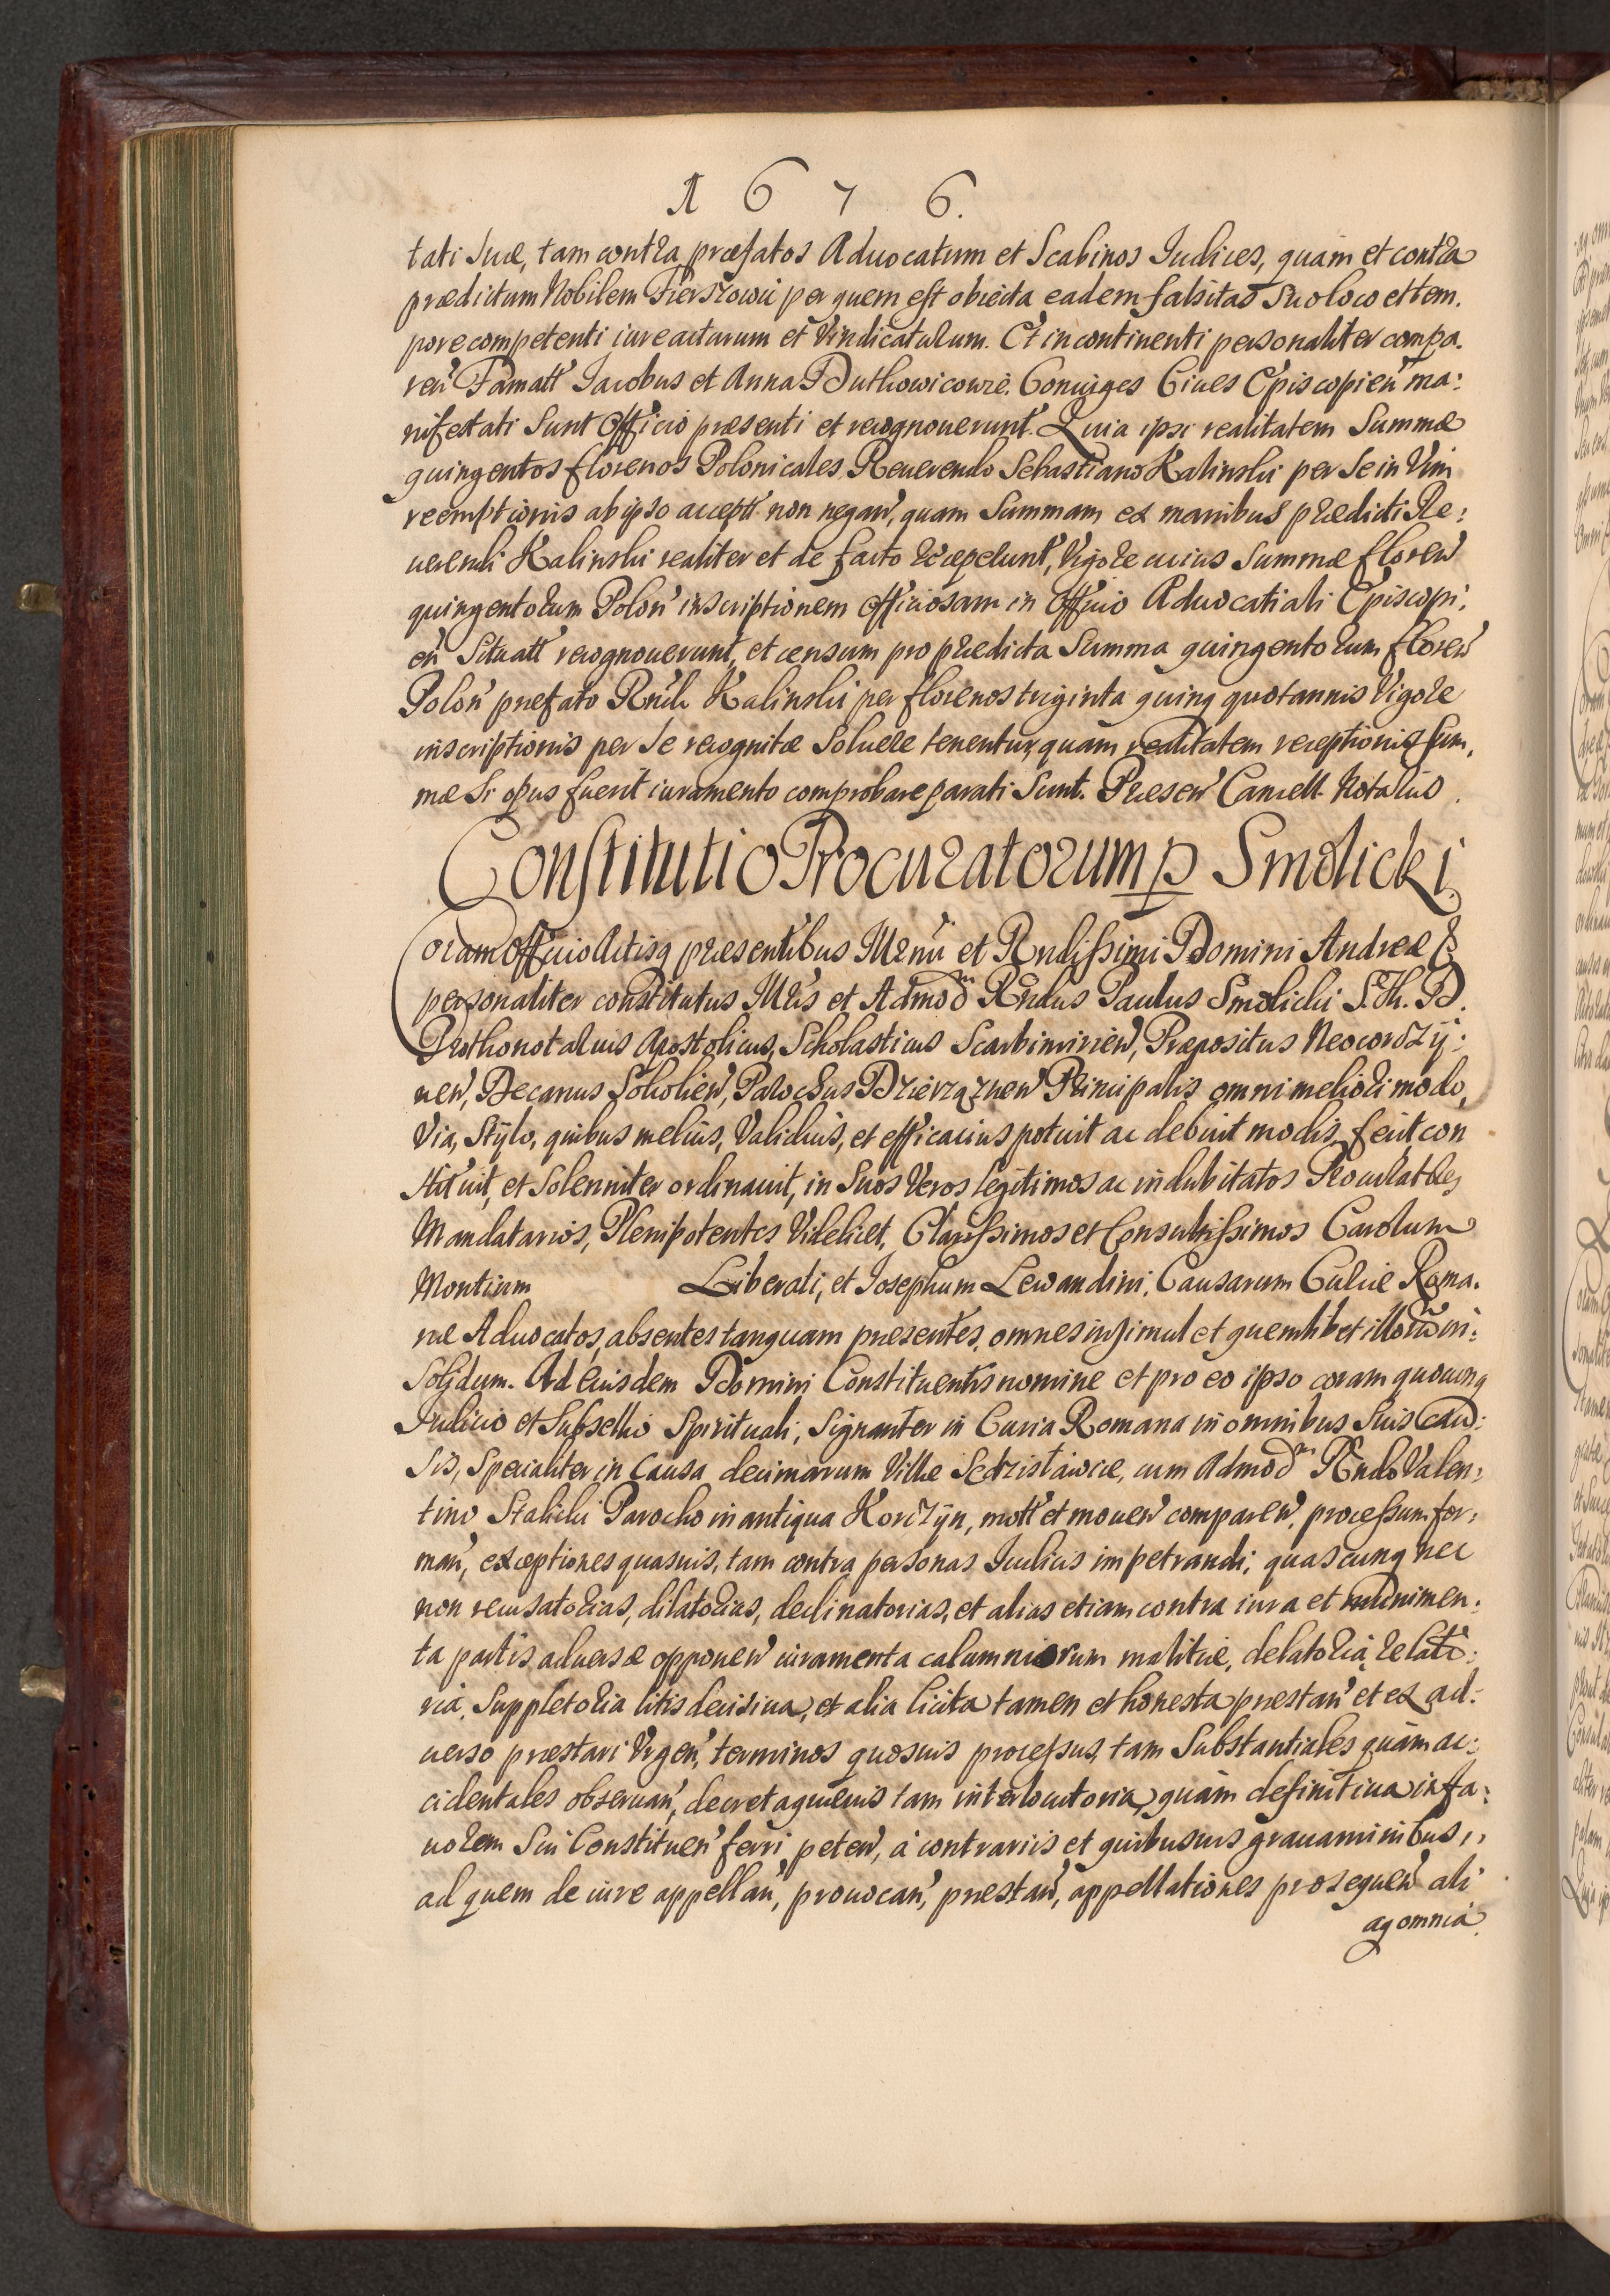 1 6 7 6.
tati Suæ, tam contra præfatos Aduocatum et Scabinos Iudices, quam et contra
prædictum Nobilem per quem est obiecta eadem falsitas Suo loco et tem.
pore competenti iure acturum et Vindicaturum. Et incontinenti personaliter compa.
ren' Famatt' Iacobus et Anna Dutkowicowie Coniuges Ciues Episcopien' ma:
nifestati Sunt Officio præsenti et recognouerunt. Quia ipsi realitatem Summæ
quingentos florenos Polonicales Reuerendo Sebastiano Kalinski per Se in Vim
reemptionis ab ipso accept' non negan', quam Summam ex manibus prædicti Re:
uerendi Kalinski realiter et de facto receperunt, Vigore cuius Summæ floren'
quingentorum Polon' inscriptionem officiosam in Officio Aduocatiali Episcopi:
en' Situatt' recognouerunt, et censum pro prædicta Summa quingentorum floren'
Polon' prefato Rndo Kalinski per florenos triginta quinq quotannis Vigore
inscriptionis per Se recognitæ Soluere tenentur, quam realitatem receptionis Sum,
mæ Si opus fuerit iuramento comprobare parati Sunt. Presen' Cancell. Notarius.
Constitutio Procuratorum p Smolicki.
Coram Officio Actisq presentibus Illrmi et Rndissimi Domini Andreæ &
personaliter constitutus Illris et Admod m Rndus Paulus Smolicki S. Th. D.
Prothonotarius Apostolicus, Scholasticus Scarbimirien', Præpositus Neocorczy:
nen', Decanus Sokolien', Parochus Dzierząznen' Principalis omni meliori modo,
Via, Stylo, quibus melius, Validius, et efficacius potuit ac debuit modis, fecit con
stituit, et Solenniter ordinauit, in Suos Veros legitimos ac indubitatos Procuratores
Mandatarios, Plenipotentes Videlicet, Clarissimos et Consultissimos Carolum
Montium Liberati, et Iosephum Lewandini, Causarum Curiæ Roma.
næ Aduocatos, absentes tanquam presentes, omnes insimul et quemlibet illorum in:
Solidum. Ad Euisdem Domini Constituentis nomine et pro eo ipso coram quocunq
Iudicio et Subsellio Spirituali, Signanter in Curia Romana in omnibus Suis Cau:
Sis, Specialiter in Causa decimarum Villæ Sedzisławice, cum Admod m Rndo Valen:
tino Stalicki Parocho in antiqua Korczyn, mott' et mouen' comparen', processum for:
man', exceptiones quasuis, tam contra personas Iudicis impetrandi, quascunq nec
non recusatorias, dilatorias, declinatorias, et alias etiam contra iura et munimen:
ta partis aduersæ opponen' iuramenta calumniorum malitiæ, delatoria, relato:
ria, Suppletoria litis decisiua, et alia licita tamen et honesta prestan' et ex ad:
uerso præstari Urgen', terminos quosuis processus, tam Substantiales quàm ac:
cidentales obseruan', decretaquæuis tam interlocutoria, quàm definitiua in fa:
uorem Sui Constituen' ferri peten', à contrariis et quibusuis grauaminibus,
ad quem de iure appellan', prouocan', prestan', appellationes prosequen' ali
aq omnia